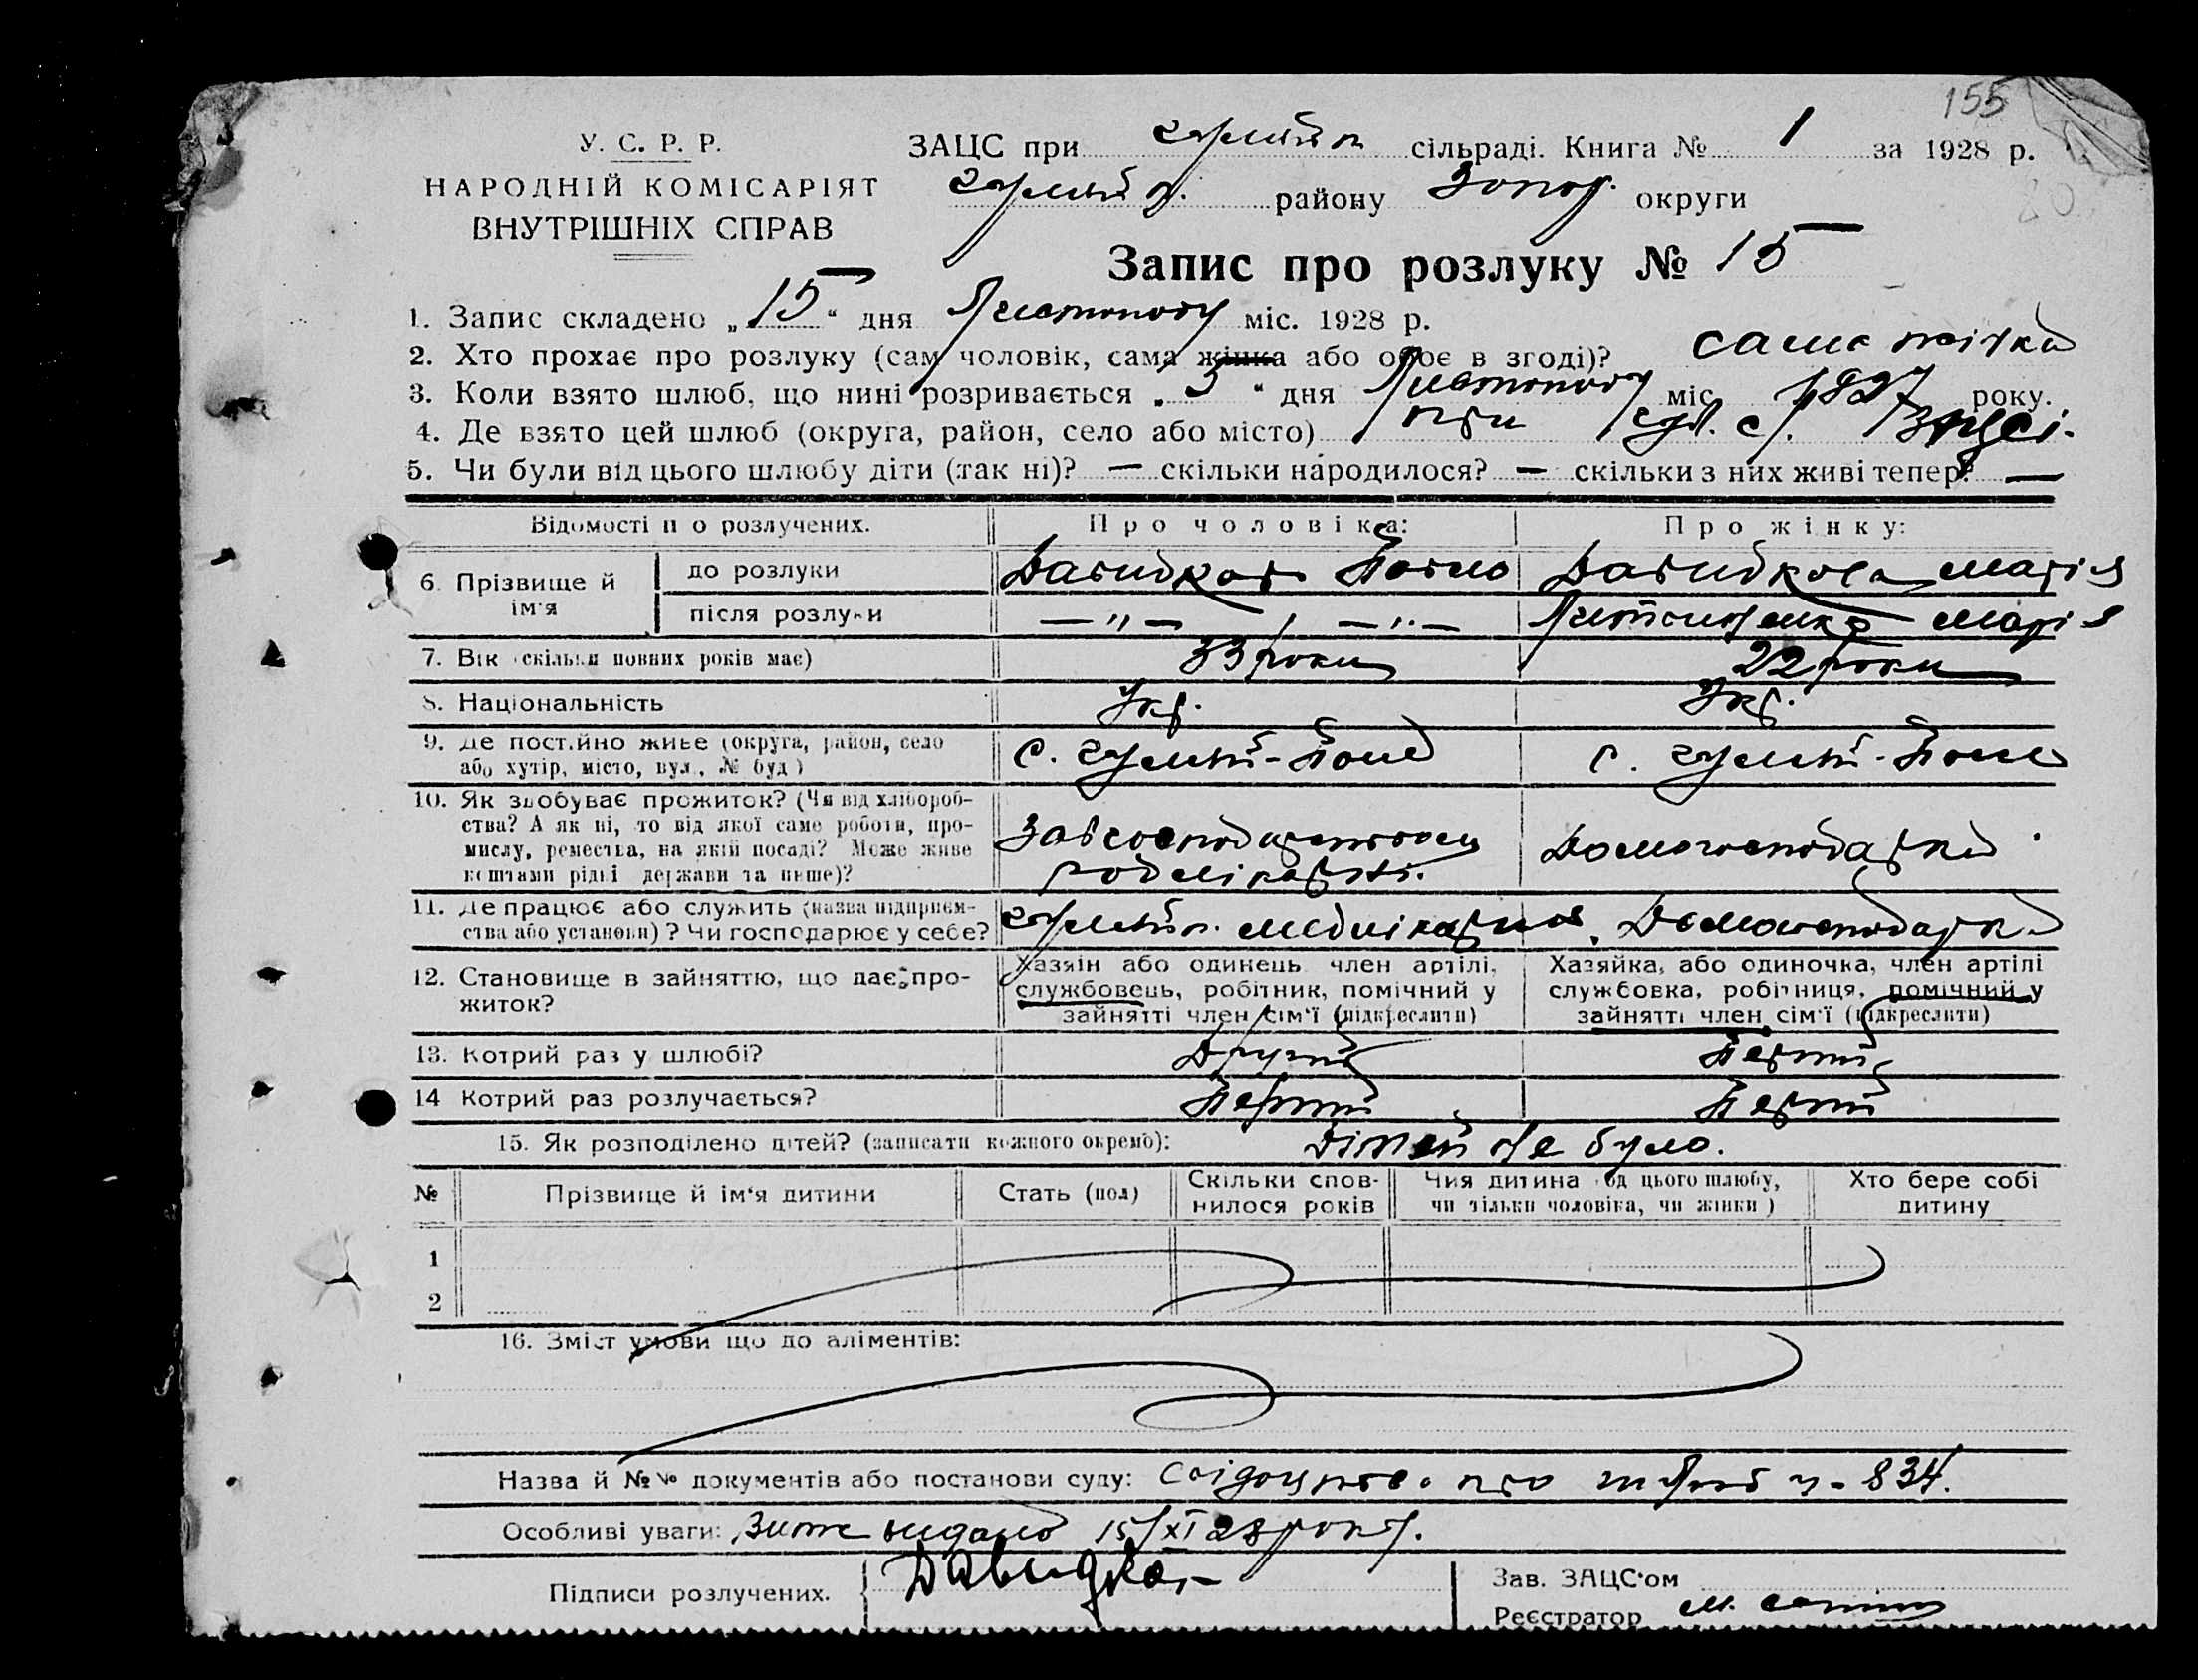 155
У. С. Р. Р.
НАРОДНІЙ КОМІСАРІЯТ
ВНУТРІШНІХ СПРАВ
ЗАЦС при сільраді. Книга № 1 за 1928 р.
району Запор. округи
Запис про розлуку № 15
1. Запис складено „15“ дня Листопаду міс. 1928 р.
2. Хто прохає про розлуку (сам чоловік, сама жінка або обоє в згоді)? сама жінка
3. Коли взято шлюб, що нині розривається „5“ дня Листопаду міс. 1927 року.
4. Де взято цей шлюб (округа, район, село або місто) при Гул. с/. Зацсі.
5. Чи були від цього шлюбу діти (так ні)? — скільки народилося? — скільки з них живі тепер? —
Відомості про розлучених. Про чоловіка: Про жінку:
6. Прізвище й ім'я до розлуки Давидков Павло Давидкова Марія
після розлуки — „ — — „ — Марія
7. Вік (скільки повних років має) 33 роки 22 роки
8. Національність Укр. Укр.
9. Де постійно живе (округа, район, село або хутір, місто, вул., № буд.) с. Гуляй-Поле с. Гуляй-Поле
10. Як здобуває прожиток? (Чи від хліборобства? А як ні, то від якої саме роботи, промислу, ремества, на якій посаді? Може живе коштами рідні держави та інше)? Завгосподарством Домогосподарка
11. Де працює або служить (назва підприємства або установи)? Чи господарює у себе? Домогосподарка
12. Становище в зайняттю, що дає прожиток? Хазяїн або одинець член артілі, службовець, робітник, помічний у зайнятті член сім'ї (підкреслити) Хазяйка, або одиночка, член артілі службовка, робітниця, помічний у зайнятті член сім'ї (підкреслити)
13. Котрий раз у шлюбі? Другий Перший
14 Котрий раз розлучається? Перший Перший
15. Як розподілено дітей? (записати кожного окремо): Дітей не було.
№ Прізвище й ім'я дитини Стать (пол) Скільки сповнилося років Чия дитина (од цього шлюбу, чи тільки чоловіка, чи жінки) Хто бере собі дитину
1
2
16. Зміст умови що до аліментів:
Назва й №№ документів або постанови суду: Свідоцтво про шлюб ч. 834.
Особливі уваги: видано 15/XI 28 року.
Підписи розлучених. Давидков
Зав. ЗАЦС'ом
Реєстратор